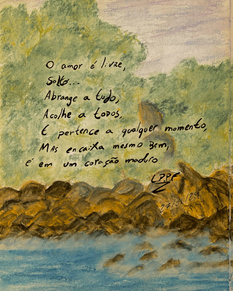 O amor é livre,
Solto...
Abrange a tudo,
Acolhe a todos,
E pertence a qualquer momento,
Mas encaixa mesmo bem,
é em um coração maduro